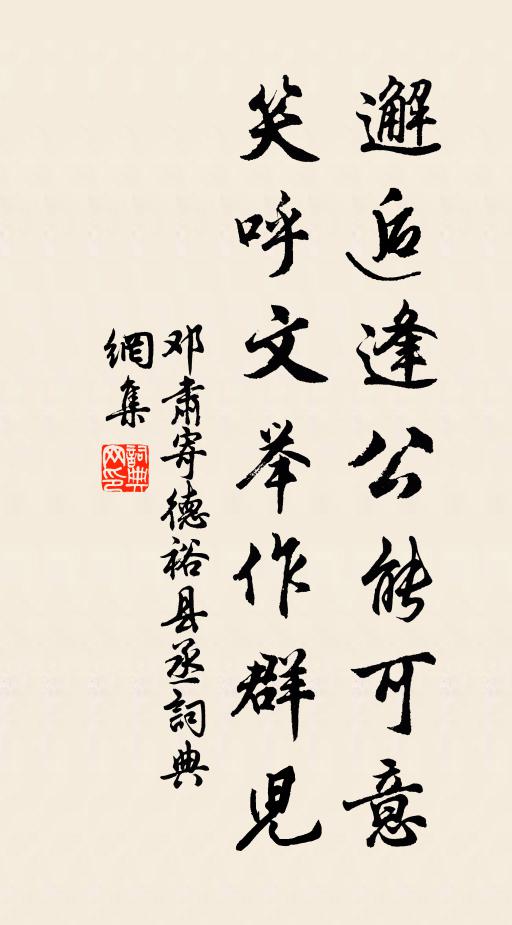 邂逅逢公能可意
笑呼文举作群児
邓肅寄德裕县丞詞典
網集
詞典
网印